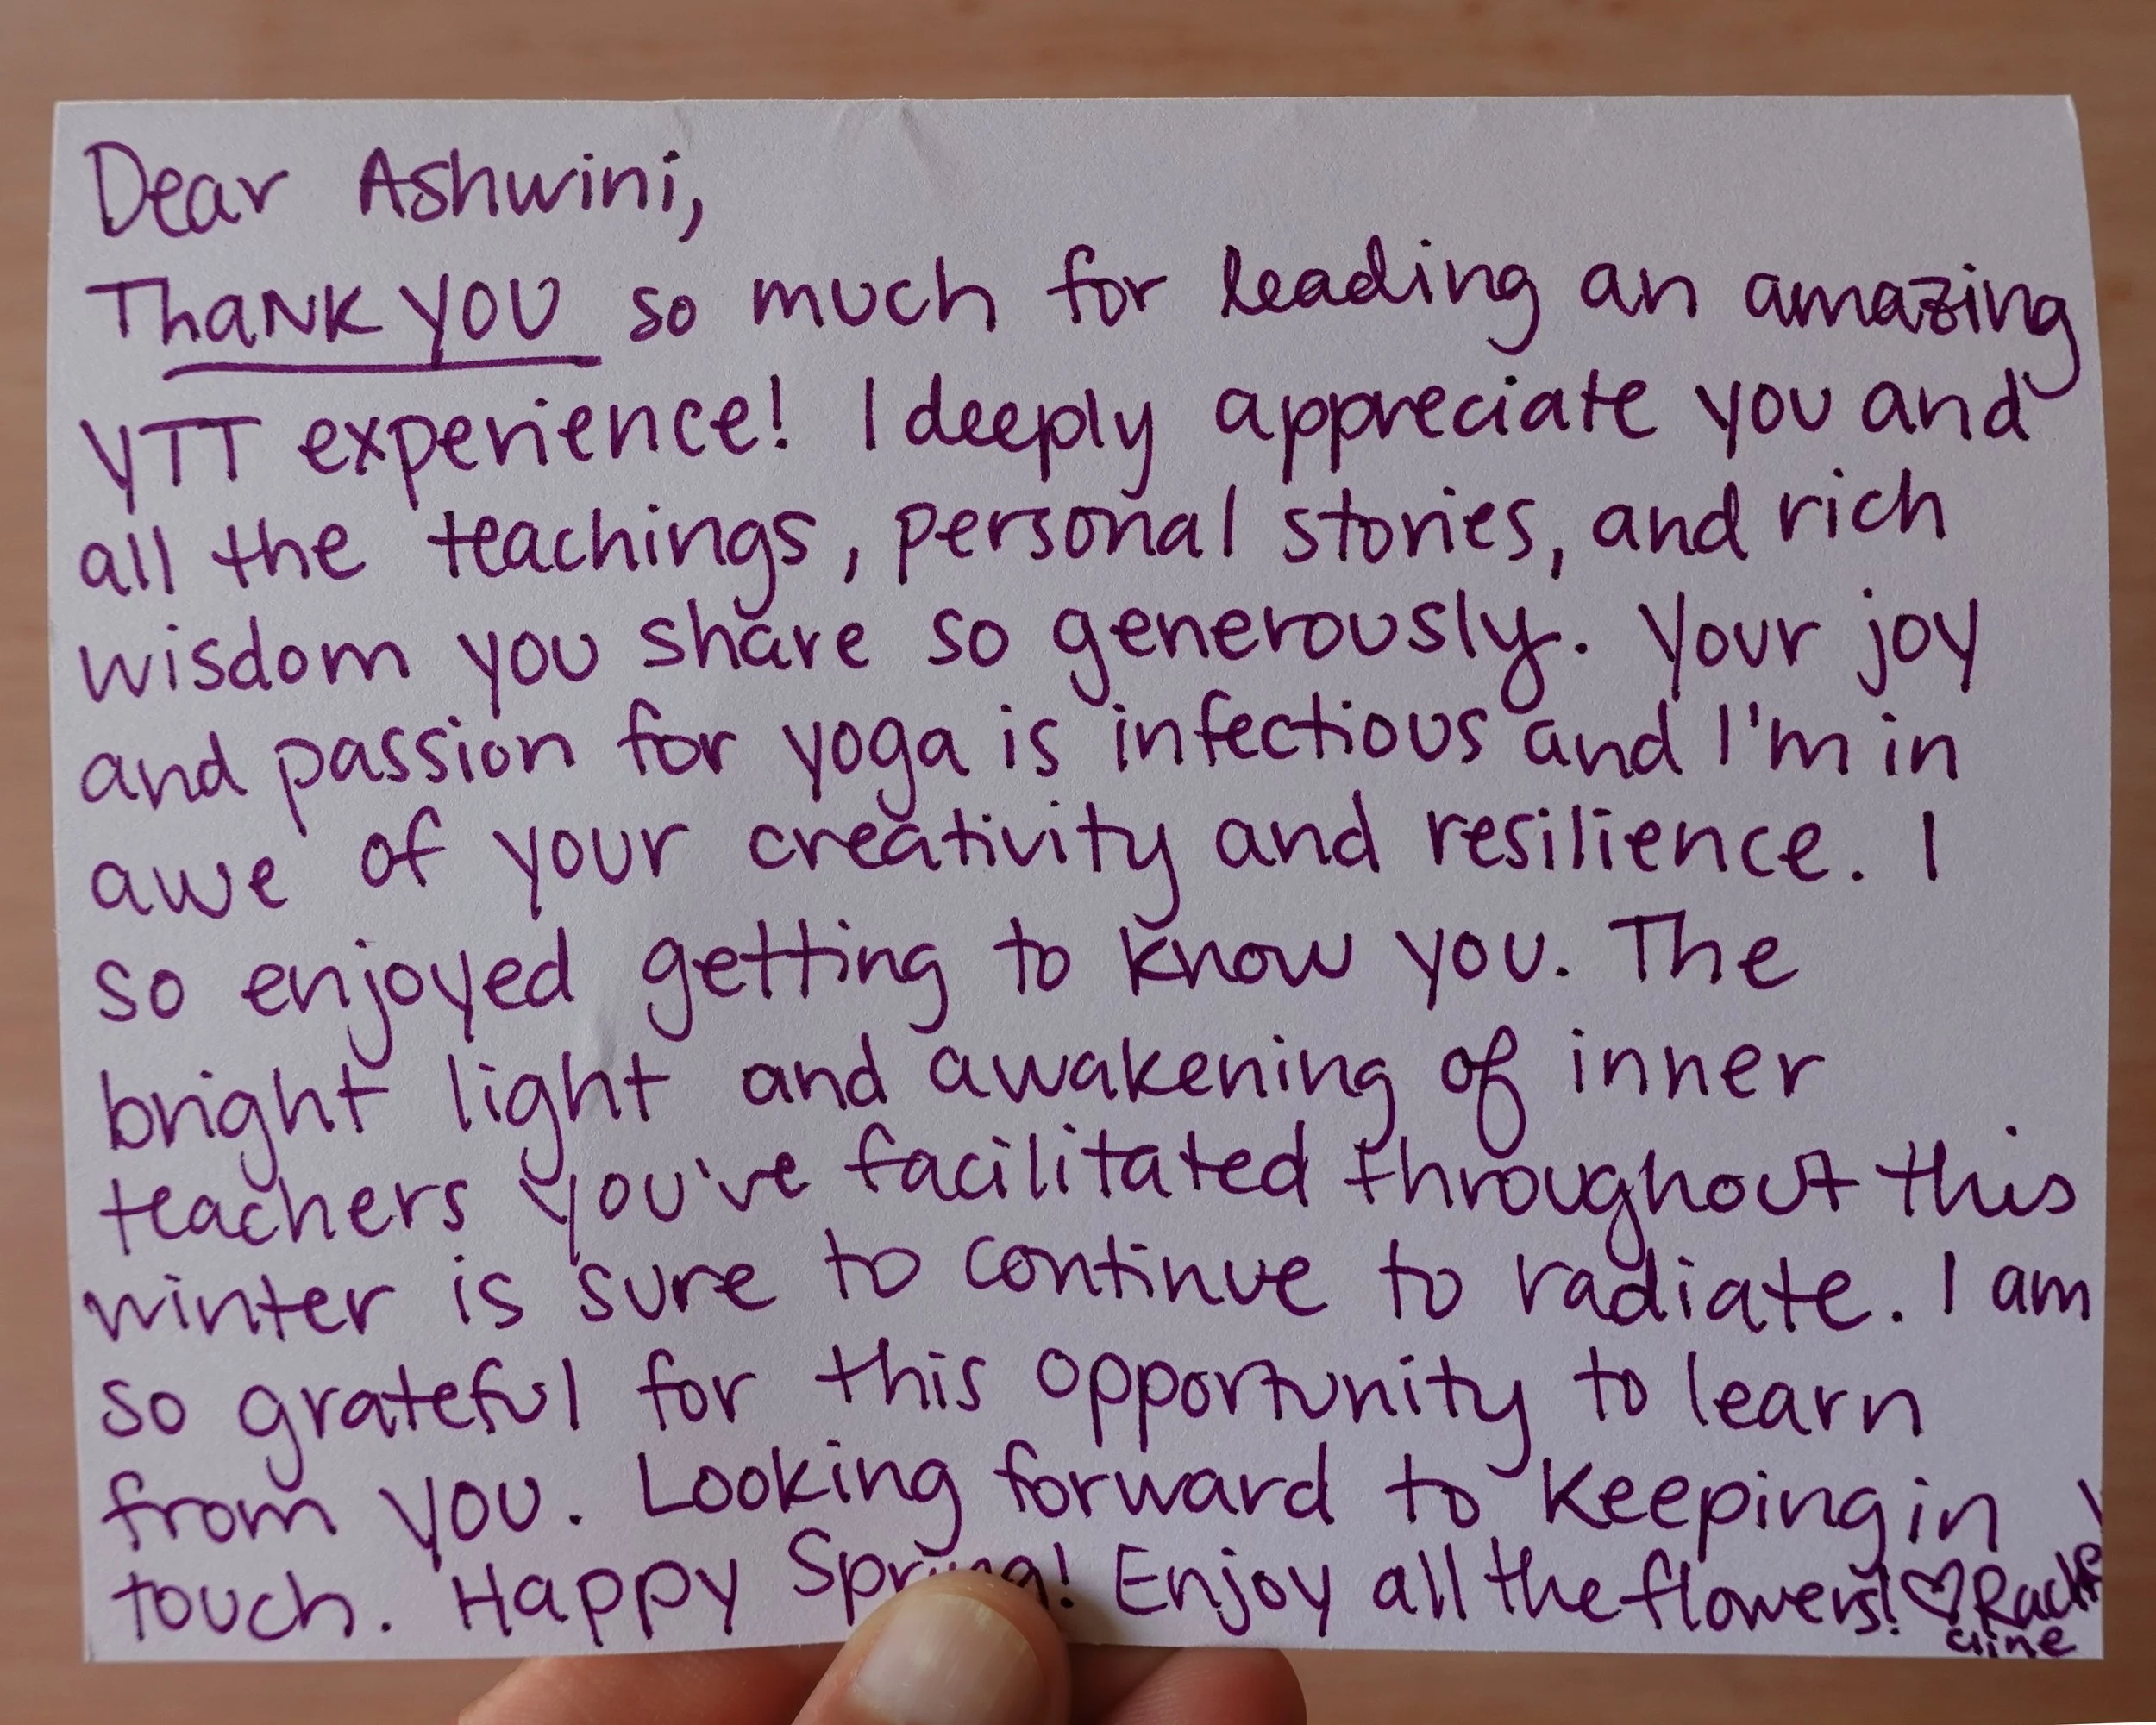 Dear Ashwini,
ThaNK YOU so much for leading an amazing
YTT experience! I deeply appreciate you and
all the teachings, personal stories, and rich
wisdom you share so generously. Your joy
and passion for yoga is infectious and I'm in
awe of your creativity and resilience. I
so enjoyed getting to know you. The
bright light and awakening of inner
teachers you've facilitated throughout this
winter is sure to continue to radiate. I am
so grateful for this opportunity to learn
from you. Looking forward to keeping in
touch. Happy Spring! Enjoy all the flowers! ♡